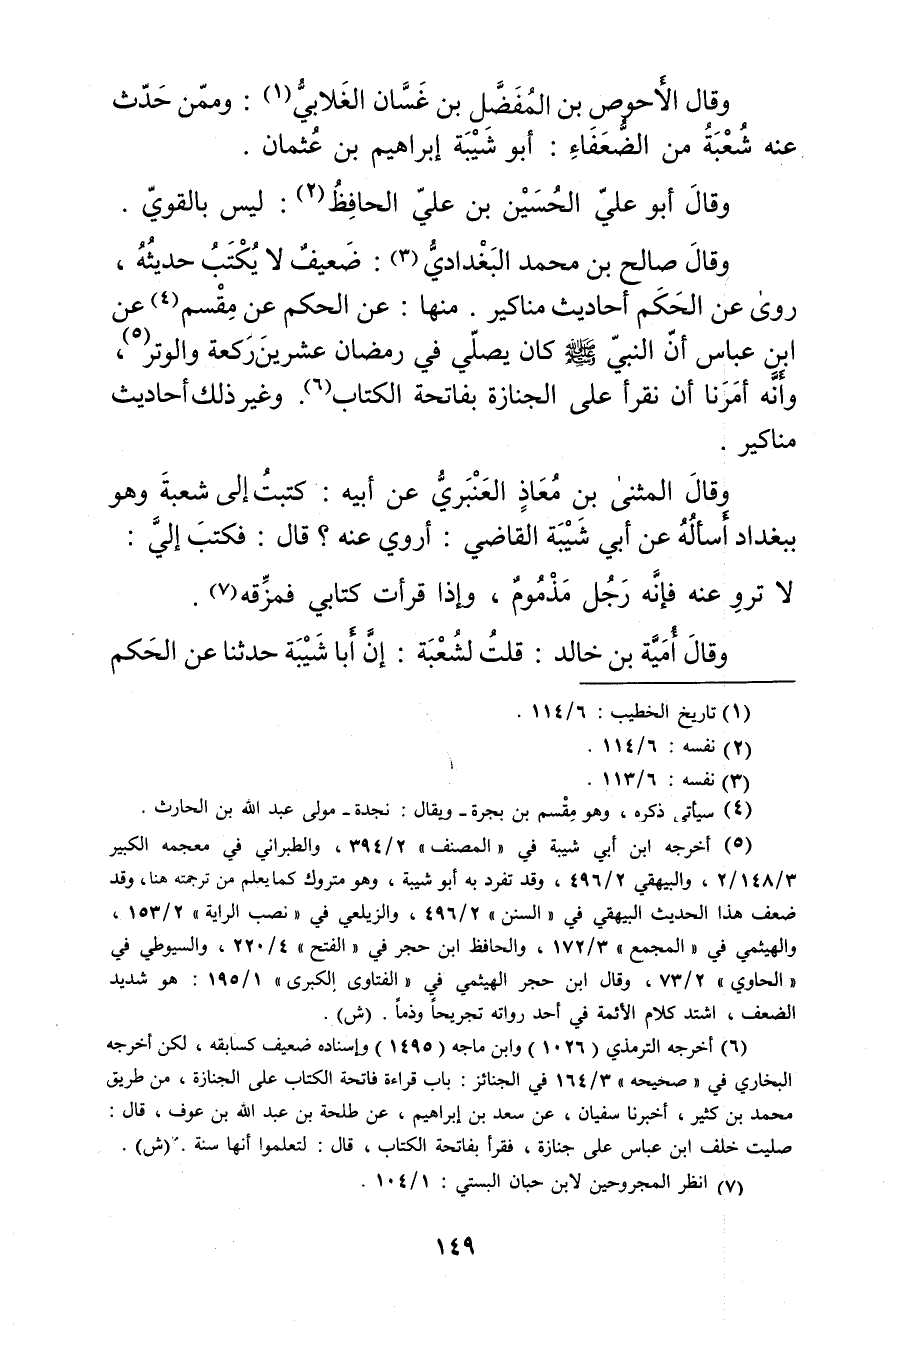 وقال الأَحوص بن المُفَضَّل بن غَسَّان الغَلابيُّ(١) : وممّن حَدّث
عنه شُعْبَةُ من الضُّعَفَاءِ : أبو شَيْبَة إبراهيم بن عُثمان .
وقالَ أبو عليّ الحُسَيْن بن عليّ الحافِظُ(٢) : ليس بالقويّ .
وقالَ صالح بن محمد البَغْداديُّ(٣) : ضَعيفٌ لا يُكْتَبُ حديثُهُ ،
روىٰ عن الحَكَم أحاديث مناكير . منها : عن الحكم عن مِقْسم(٤) عن
ابن عباس أنّ النبيّ ﷺ كان يصلّي في رمضان عشرينَ رَكعة والوتر(٥)،
وأنَّه أمَرَنا أن نقرأ على الجنازة بفاتحة الكتاب(٦). وغير ذلك أحاديث
مناكير .
وقالَ المثنىٰ بن مُعَاذٍ العَنْبَريُّ عن أبيه : كتبتُ إلى شعبةَ وهو
ببغداد أَسألُهُ عن أبي شَيْبَة القاضي : أروي عنه ؟ قال : فكتبَ إليَّ :
لا تروِ عنه فإنَّه رَجُل مَذْمُومٌ ، وإذا قرأت كتابي فمزِّقه(٧) .
وقالَ أُمَيَّة بن خالد : قلتُ لشُعْبَة : إنَّ أَبا شَيْبَة حدثنا عن الحَكم
(١) تاريخ الخطيب : ١١٤/٦ .
(٢) نفسه : ١١٤/٦ .
(٣) نفسه : ١١٣/٦ .
(٤) سيأتي ذكره ، وهو مِقْسم بن بجرة ـ ويقال : نجدة ـ مولى عبد الله بن الحارث .
(٥) أخرجه ابن أبي شيبة في « المصنف » ٣٩٤/٢ ، والطبراني في معجمه الكبير
٢/١٤٨/٣ ، والبيهقي ٤٩٦/٢ ، وقد تفرد به أبو شيبة ، وهو متروك كما يعلم من ترجمته هنا، وقد
ضعف هذا الحديث البيهقي في « السنن » ٤٩٦/٢ ، والزيلعي في « نصب الراية » ١٥٣/٢ ،
والهيثمي في « المجمع » ١٧٢/٣ ، والحافظ ابن حجر في « الفتح » ٢٢٠/٤ ، والسيوطي في
« الحاوي » ٧٣/٢ ، وقال ابن حجر الهيثمي في « الفتاوى الكبرى » ١٩٥/١ : هو شديد
الضعف ، اشتد كلام الأئمة في أحد رواته تجريحاً وذماً . (ش) .
(٦) أخرجه الترمذي ( ١٠٢٦ ) وابن ماجه ( ١٤٩٥ ) وإسناده ضعيف كسابقه ، لكن أخرجه
البخاري في « صحيحه » ١٦٤/٣ في الجنائز : باب قراءة فاتحة الكتاب على الجنازة ، من طريق
محمد بن كثير ، أخبرنا سفيان ، عن سعد بن إبراهيم ، عن طلحة بن عبد الله بن عوف ، قال :
صليت خلف ابن عباس على جنازة ، فقرأ بفاتحة الكتاب ، قال : لتعلموا أنها سنة . (ش) .
(٧) انظر المجروحين لابن حبان البستي : ١٠٤/١ .
١٤٩